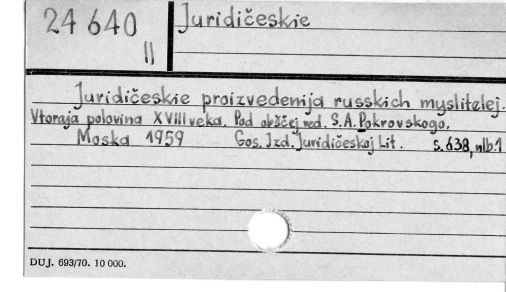 24 640
II
Juridičeskie
Juridičeskie proizvedenija russkich myslitelej.
Vtoraja polovina XVIII veka. Pod obščej red. S.A. Pokrovskogo.
Moska 1959 Gos. Izd. Juridičeskoj Lit. s. 638, nlb. 1
DUJ. 693/70. 10 000.